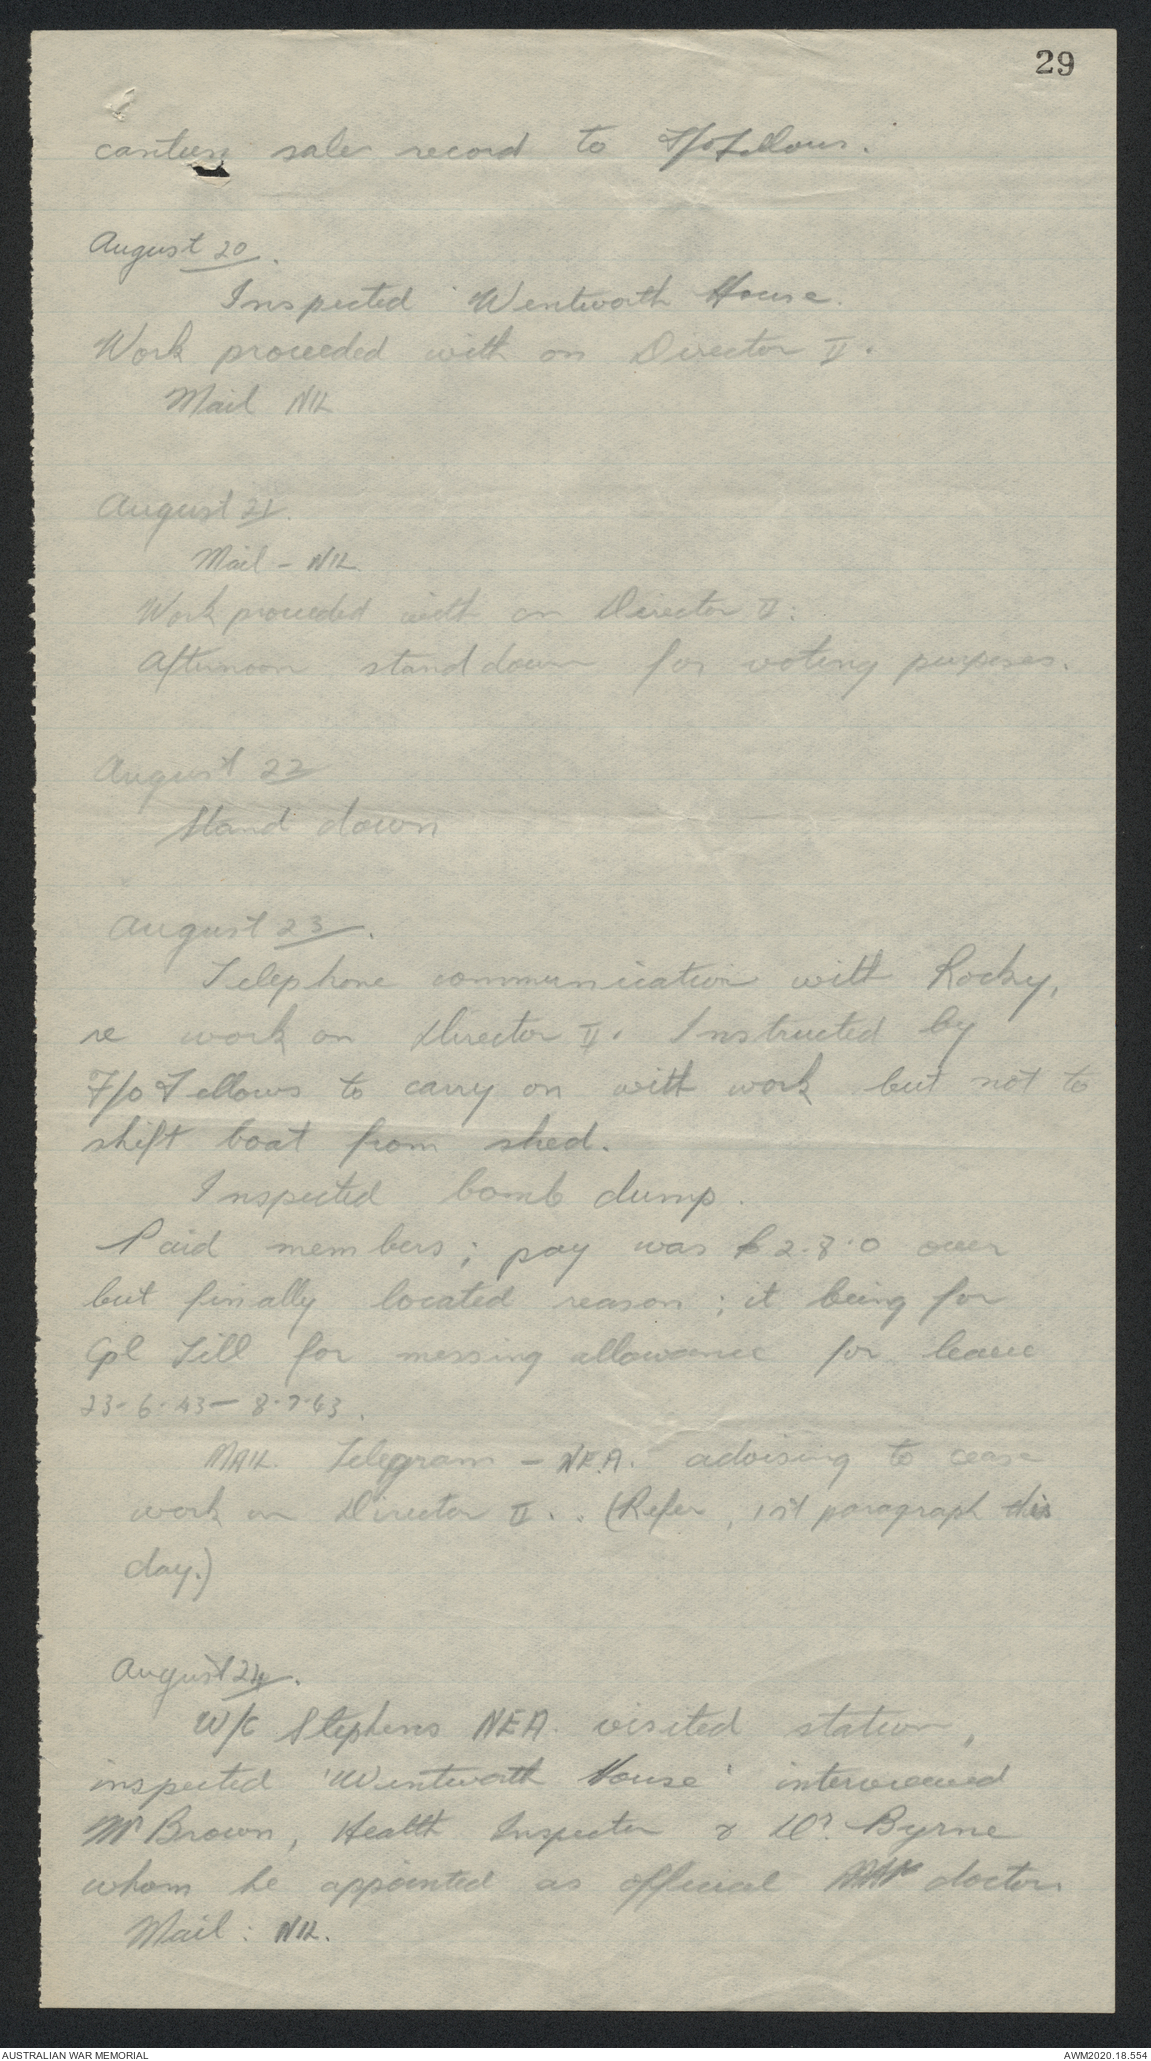 29
canteen sales record to F/o Fellows.
August 20.
Inspected 'Wentworth House.
Work proceeded with on Director II.
Mail NIL
August 21.
Mail - NIL.
Work proceeded with on Director II.
Afternoon stand down for voting purposes.
August 22
Stand down
August 23.
Telephone communication with Rocky,
re work on Director II. Instructed by
F/o Fellows to carry on with work but not to
shift boat from shed.
Inspected bomb dump.
Paid members; pay was £2.8.0 over
but finally located reason; it being for
Cpl Till for messing allowance for leave
23-6-43 - 8-7-43.
MAIL. Telegram - NEA. advising to cease
work on Director II. (Refer, 1st paragraph this
day.)
August 24.
W/C Stephens NEA. visited station,
inspected 'Wentworth House' interviewed
Mr Brown, Health Inspector & Dr. Byrne
whom he appointed as official doctor
Mail: NIL.
AUSTRALIAN WAR MEMORIAL
AWM2020.18.554